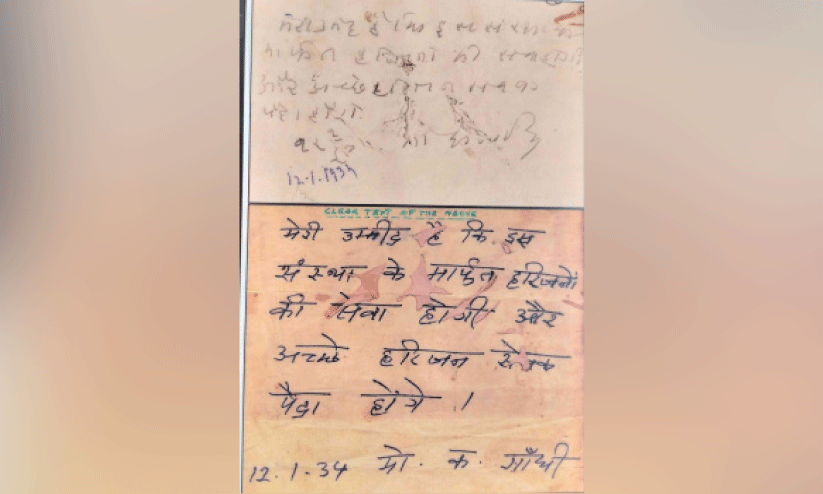 मेरी उम्मीद है कि इस संस्था के
मार्फत हरिजनों की सेवा होगी
और अच्छे हरिजन सेवक
पैदा होंगे
मो क गांधी
12.1.1934
CLEAR TEXT OF THE ABOVE
मेरी उम्मीद है कि इस
संस्था के मार्फत हरिजनों
की सेवा होगी और
अच्छे हरिजन सेवक
पैदा होंगे ।
12.1.34 मो. क. गाँधी